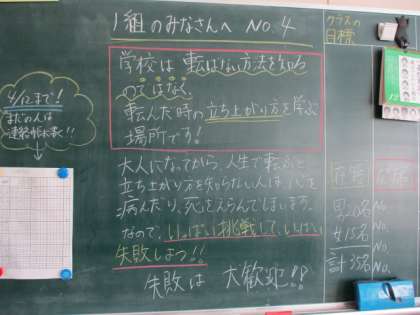 1組のみなさんへ NO.4
学校は転ばない方法を知る
のではなく、
転んだ時の立ち上がり方を学ぶ
場所です!
大人になってから、人生で転ぶと
立ち上がり方を知らない人は、心を
病んだり、死をえらんでしまいます。
なので、いっぱい挑戦して、いっぱい
失敗しよう!!
失敗は 大歓迎!!
4/12まで!
まだの人は
クラスの
目標
男20名
女15名
計35名
No.
No.
No.